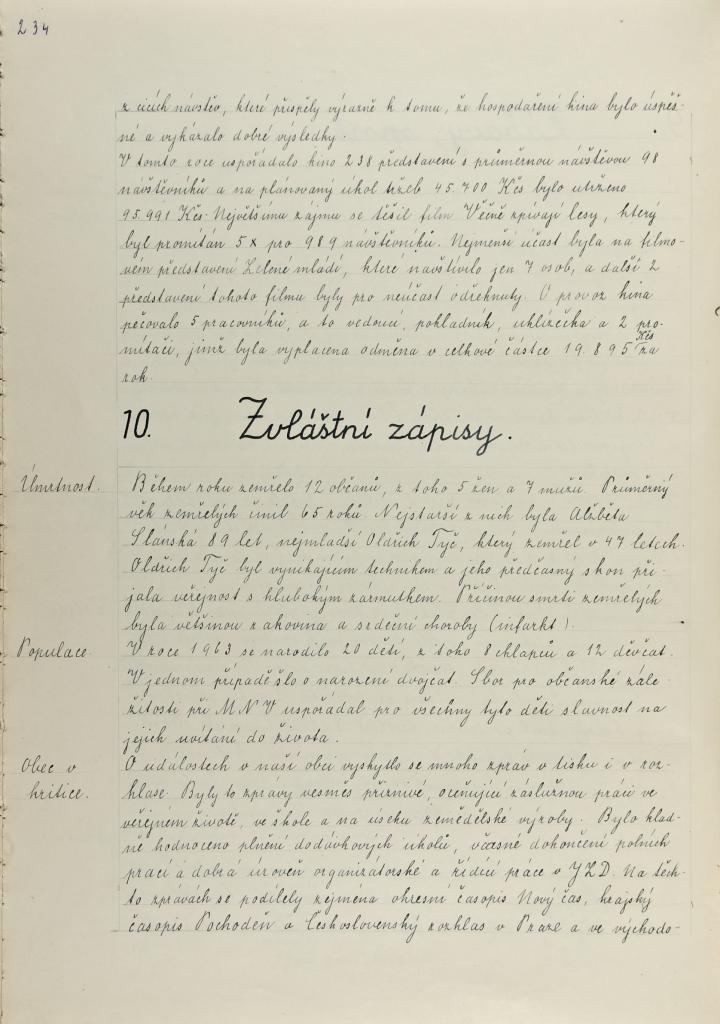 234
z cizích návštěv, které přispěly výrazně k tomu, že hospodaření kina bylo úspěš-
né a vykázalo dobré výsledky.
V tomto roce uspořádalo kino 238 představení s průměrnou návštěvou 98
návštěvníků a na plánovaný úkol tržeb 45.700 Kčs bylo utrženo
95.991 Kčs. Největšímu zájmu se těšil film Věčně zpívají lesy, který
byl promítán 5x pro 989 návštěvníků. Nejmenší účast byla na filmo-
vém představení Zelené mládí, které navštívilo jen 7 osob, a další 2
představení tohoto filmu byly pro neúčast odřeknuty. O provoz kina
pečovalo 5 pracovníků, a to vedoucí, pokladník, uklízečka a 2 pro-
mítači, jimž byla vyplacena odměna v celkové částce 19.895 Kčs za
rok.
10. Zvláštní zápisy.
Úmrtnost. Během roku zemřelo 12 občanů, z toho 5 žen a 7 mužů. Průměrný
věk zemřelých činil 65 roků. Nejstarší z nich byla Alžběta
Slánská 89 let, nejmladší Oldřich Tyč, který zemřel v 47 letech.
Oldřich Tyč byl vynikajícím technikem a jeho předčasný skon při-
jala veřejnost s hlubokým zármutkem. Příčinou smrti zemřelých
byla většinou rakovina a srdeční choroby (infarkt).
Populace. V roce 1963 se narodilo 20 dětí, z toho 8 chlapců a 12 děvčat.
V jednom případě šlo o narození dvojčat. Sbor pro občanské zále-
žitosti při MNV uspořádal pro všechny tyto děti slavnost na
jejich uvítání do života.
Obec v O událostech v naší obci vyskytlo se mnoho zpráv v tisku i v roz-
kritice. hlase. Byly to zprávy vesměs příznivé, oceňující záslužnou práci ve
veřejném životě, ve škole a na úseku zemědělské výroby. Bylo klad-
ně hodnoceno plnění dodávkových úkolů, včasné dokončení polních
prací a dobrá úroveň organizátorské a řídící práce v JZD. Na těch-
to zprávách se podílely zejména okresní časopis Nový čas, krajský
časopis Pochodeň a Československý rozhlas v Praze a ve východo-